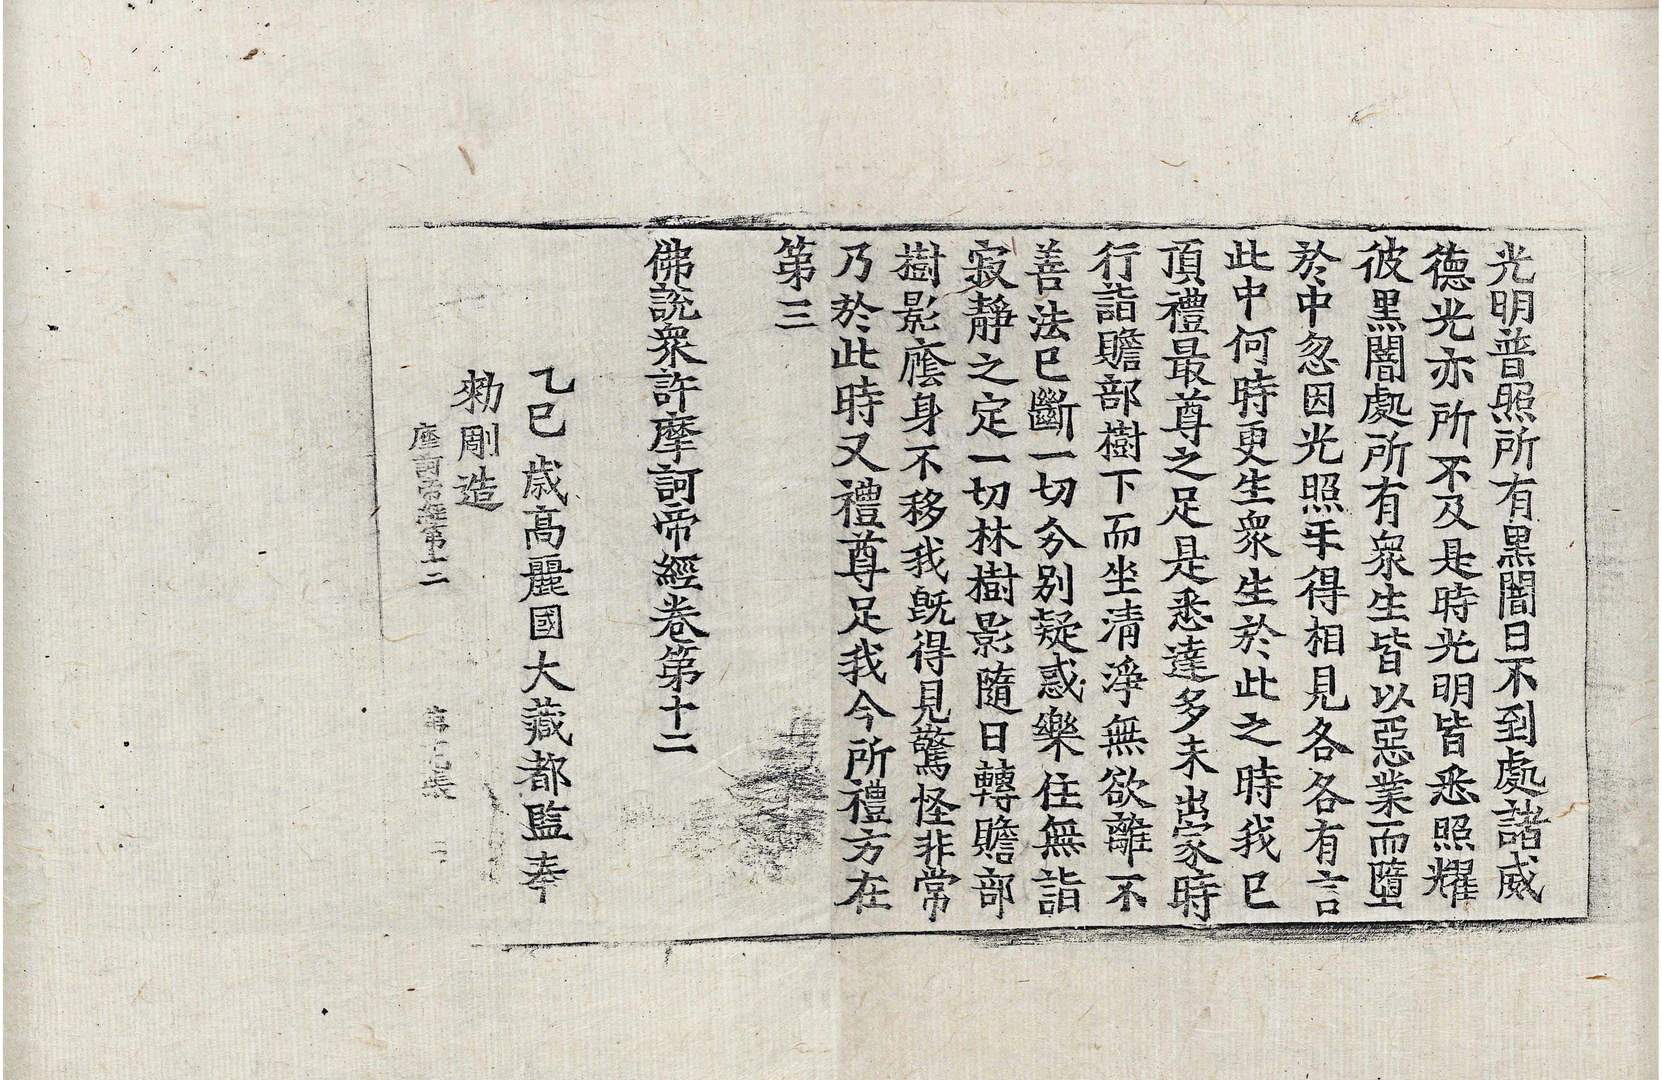 光明普照所有黑闇日不到處諸威
德光亦所不及是時光明皆悉照耀
彼黑闇處所有衆生皆以惡業而墮
於中忽因光照乎得相見各各有言
此中何時更生衆生於此之時我已
頂禮最尊之足是悉達多未出家時
行詣贍部樹下而坐清淨無欲離不
善法已斷一切分别疑惑樂住無詣
寂靜之定一切林樹影隨日轉贍部
樹影廕身不移我旣得見驚怪非常
乃於此時又禮尊足我今所禮方在
第三
佛說衆許摩訶帝經卷第十二
乙巳歲高麗國大藏都監奉
勑彫造
摩訶帝經第十二
第
張